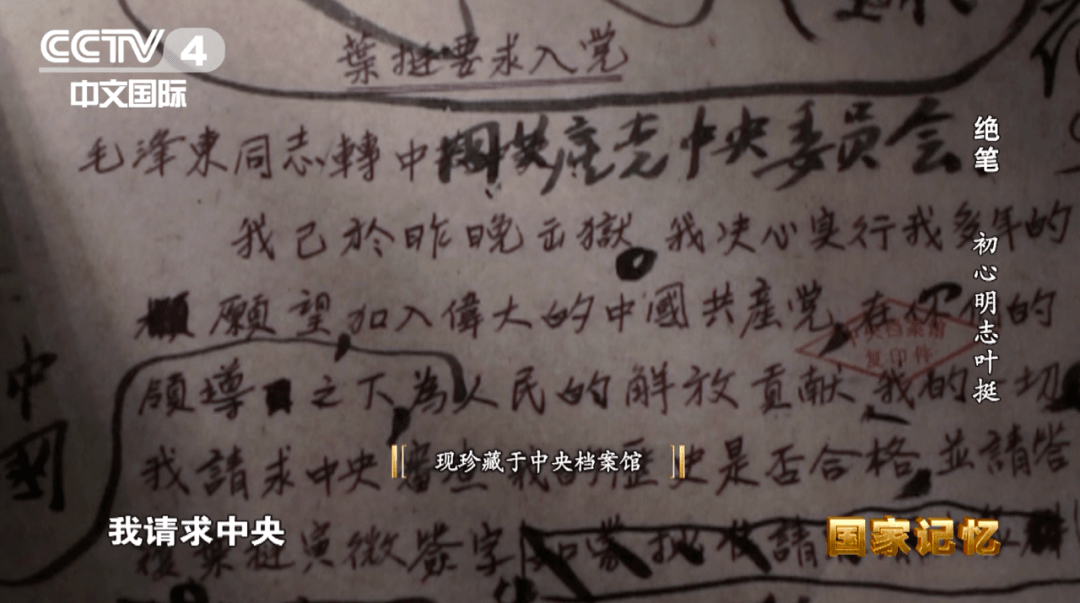 CCTV 4
中文国际
葉挺要求入党
毛澤東同志轉中國共產党中央委員会
我已於昨晚出獄,我决心实行我多年的
願望,加入偉大的中國共產党,在你们的
領導之下,為人民的解放貢献我的一切
我請求中央審查我的歷史是否合格,並請答
復葉挺寅微簽字
中國
中央档案馆
复印件
绝笔 初心明志叶挺
现珍藏于中央档案馆
我请求中央
国家记忆